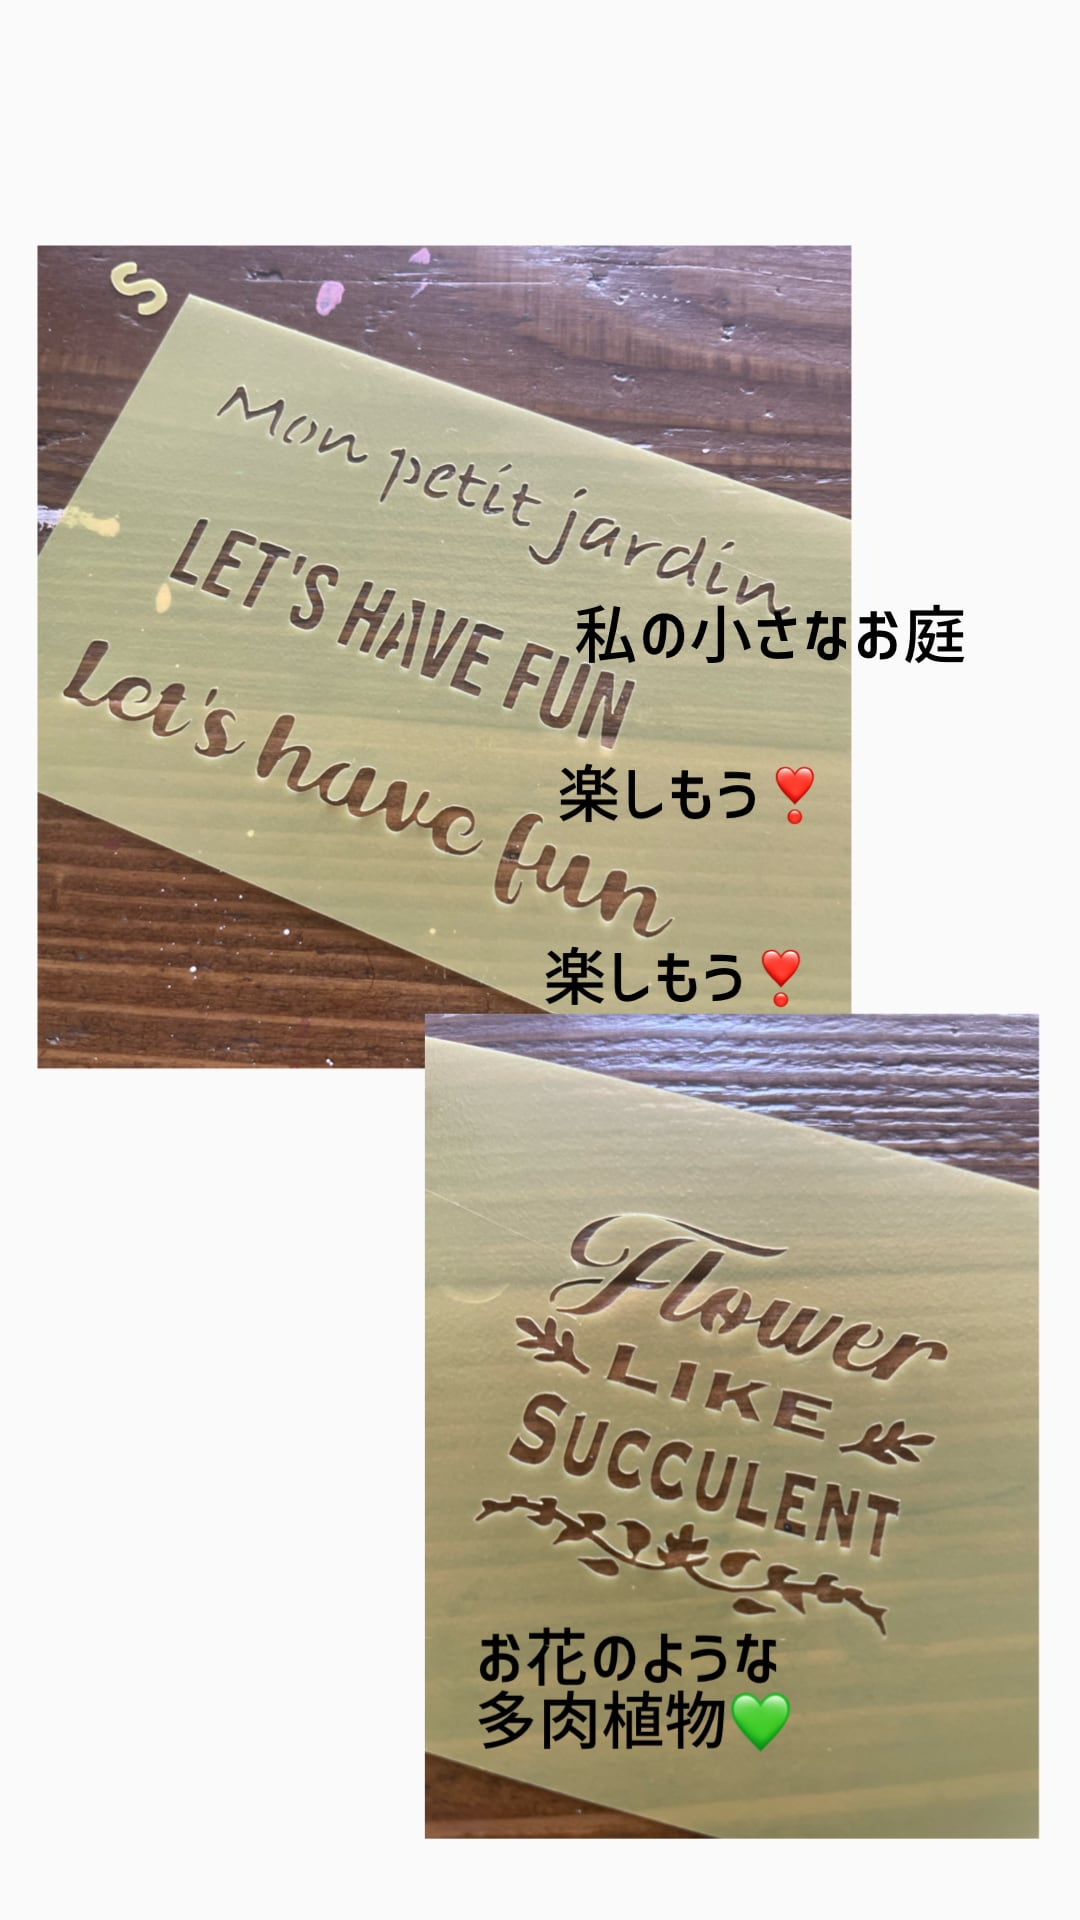 S
Mon petit jardin
私の小さなお庭
LET'S HAVE FUN
楽しもう❣️
Let's have fun
楽しもう❣️
Flower
LIKE
SUCCULENT
お花のような
多肉植物💚